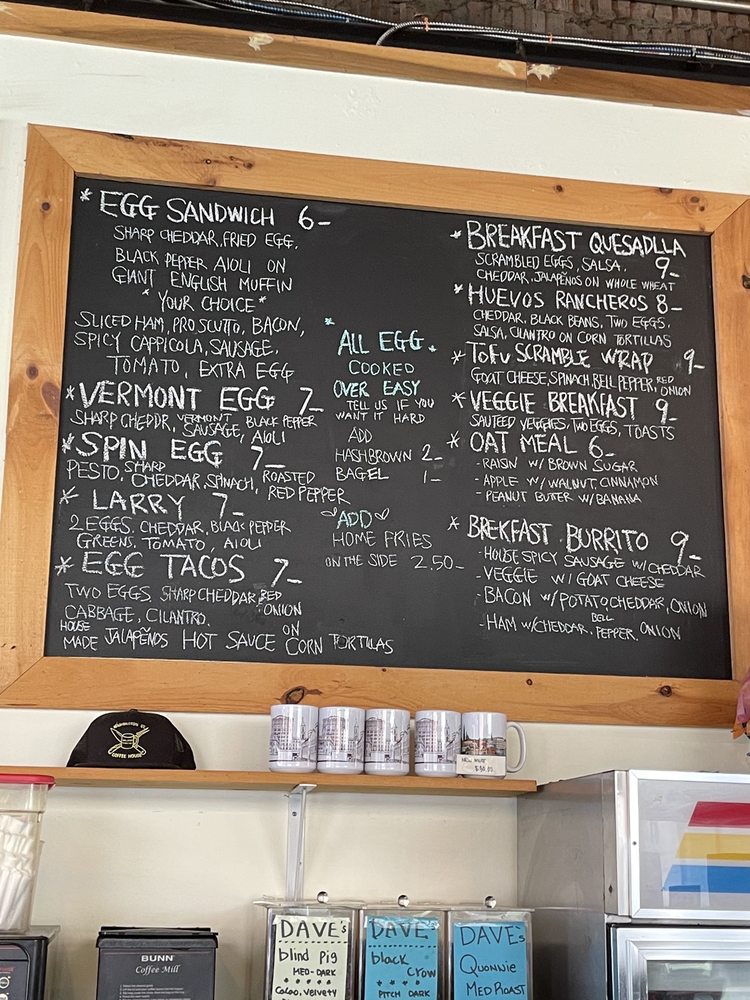 * EGG SANDWICH 6-
SHARP CHEDDAR, FRIED EGG,
BLACK PEPPER AIOLI ON
GIANT ENGLISH MUFFIN
* YOUR CHOICE *
SLICED HAM, PROSCUTTO, BACON,
SPICY CAPPICOLA, SAUSAGE,
TOMATO, EXTRA EGG
* VERMONT EGG 7-
SHARP CHEDDR, VERMONT SAUSAGE, BLACK PEPPER AIOLI
* SPIN EGG 7-
PESTO, SHARP CHEDDAR, SPINACH, ROASTED RED PEPPER
* LARRY 7-
2 EGGS, CHEDDAR, BLACK PEPPER
GREENS, TOMATO, AIOLI
* EGG TACOS 7-
TWO EGGS, SHARP CHEDDAR, RED ONION
CABBAGE, CILANTRO,
HOUSE MADE JALAPEÑOS HOT SAUCE ON CORN TORTILLAS
* ALL EGG *
COOKED
OVER EASY
TELL US IF YOU
WANT IT HARD
ADD
HASHBROWN 2-
BAGEL 1-
ADD
HOME FRIES
ON THE SIDE 2.50-
* BREAKFAST QUESADLLA
SCRAMBLED EGGS, SALSA, 9-
CHEDDAR, JALAPEÑOS ON WHOLE WHEAT
* HUEVOS RANCHEROS 8-
CHEDDAR, BLACK BEANS, TWO EGGS,
SALSA, CILANTRO ON CORN TORTILLAS
* TOFU SCRAMBLE WRAP 9-
GOAT CHEESE, SPINACH, BELL PEPPER, RED ONION
* VEGGIE BREAKFAST 9-
SAUTEED VEGGIES, TWO EGGS, TOASTS
* OAT MEAL 6-
- RAISIN W/ BROWN SUGAR
- APPLE W/ WALNUT, CINNAMON
- PEANUT BUTTER W/ BANANA
* BREKFAST BURRITO 9-
- HOUSE SPICY SAUSAGE W/ CHEDDAR
- VEGGIE W/ GOAT CHEESE
- BACON W/ POTATO, CHEDDAR, ONION
- HAM W/ CHEDDAR, BELL PEPPER, ONION
COFFEE HOUSE
BUNN
Coffee Mill
DAVE's
blind Pig
MED-DARK
DAVE's
black
CROW
PITCH DARK
DAVE's
Quonnie
MED ROAST